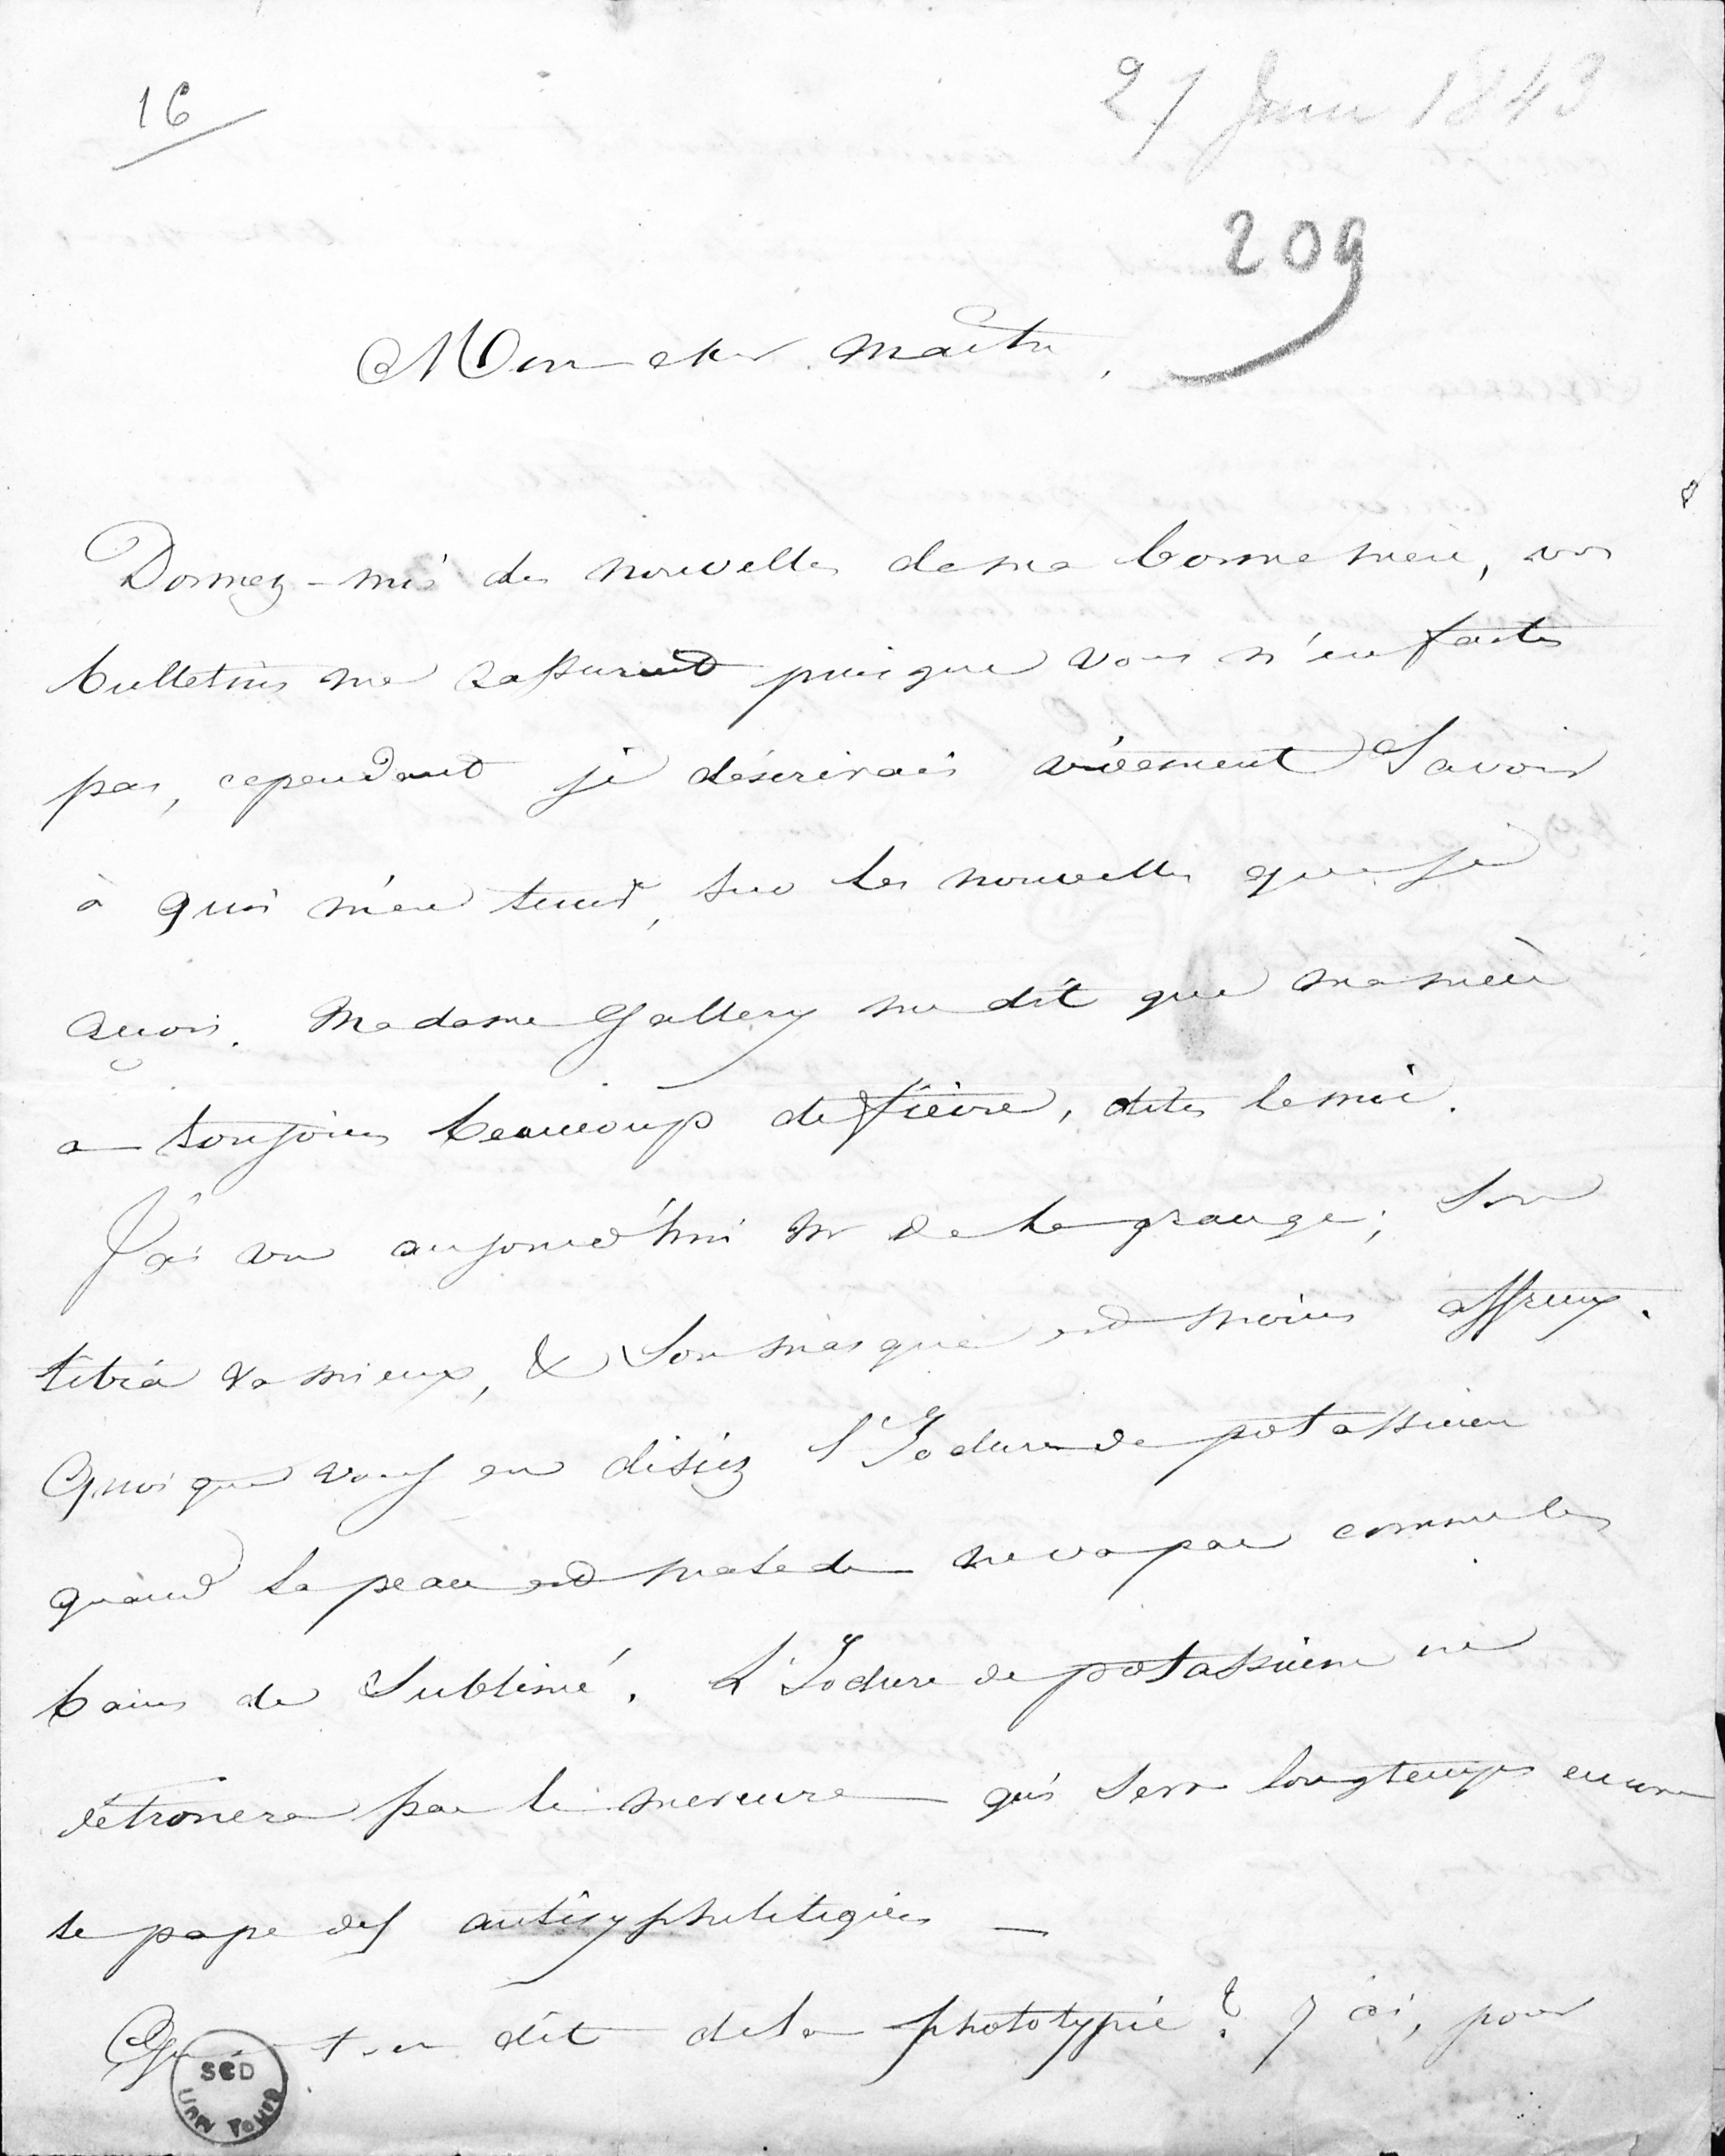 16
27 Juin 1843
209
Mon cher maître,
Donnez-moi des nouvelles de ma bonne mère, vos
bulletins me rassurent puisque vous n'en faites
pas, cependant je désirerais vivement savoir
à quoi m'en tenir, sur les nouvelles que je
reçois. Madame Gallery me dit que ma mère
a toujours beaucoup de fièvre, dites le moi.
J'ai vu aujourd'hui Mr de Lagrange; son
tibia va mieux, & son masque est moins affreux.
Quoique vous en disiez l'Iodure de potassium
quand la peau est malade ne va pas comme les
bains de Sublimé. L'Iodure de potassium ne
détronera pas le mercure qui sera longtemps encore
le pape des antisyphilitiques —
Que t-on dit de la phototypie? J'ai, pour
SCD
UNIV TOURS